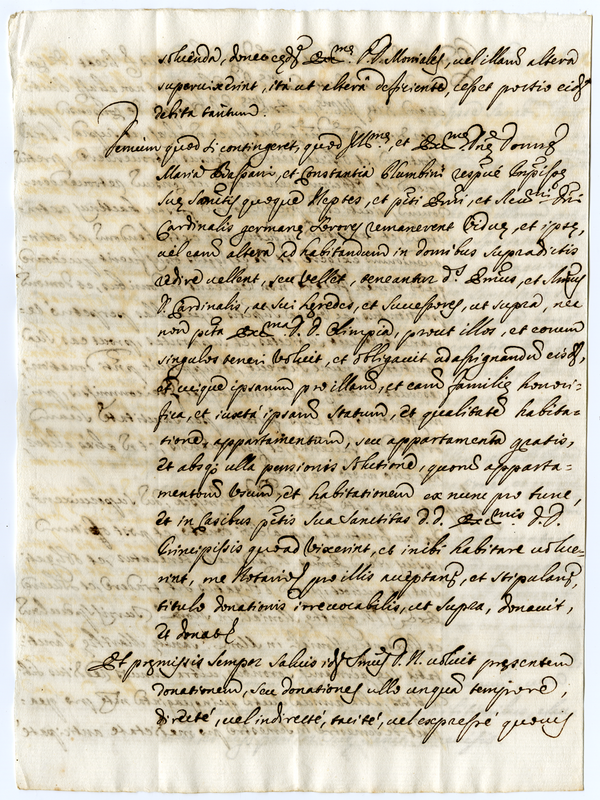 soluenda, donec ęde Excme. D.D. Moniales, uel illarū altera
superuixerint, ità ut alterâ deficiente, cesset portio eide
debita tantum.
Demum quod si contingeret, quod Illme, et Excme Dnę Donnę
Maria Bassani, et Constantia Plumbini respuè Prpisse
Suę Sanctis quoque Neptes, et pti Emi, et Reumi Dni
Cardinalis germanę Sorores remanerent viduę, et ipsę,
uel earū altera, ad habitandum in domibus supradictis
redire uellent, seu vellet, teneantur ds Emus, et Rmus
D. Cardinalis, ac sui hęredes, et successores, ut supra, nec
non pta Excma D. D. Olimpia, prout illos, et eorum
singulos teneri voluit, et obligauit ad assignandū eisde,
et cuique ipsarum pro illarū, et earū familię honori=
fica, et iuxtà ipsarū statum, et qualitatē habita=
tione, appartamentum, seu appartamenta gratis,
et absq; ulla pensionis solutione, quorū apparta=
mentorū usum, et habitationem ex nunc pro tunc,
et in casibus ptis Sua Sanctitas d.d. Excmis D.D.
Principissis quoad vixerint, et inibi habitare uolue-
rint, me Notario pro illis acceptant, et stipulant,
titulo donationis irreuocabilis, ut supra, donauit,
et donat.
Et pręmissis semper saluis ide Smus D.N. uoluit pręsentem
donationem, seu donationes ullo unquā tempore,
directè, uel indirectè, tacitè, uel expressè quouis